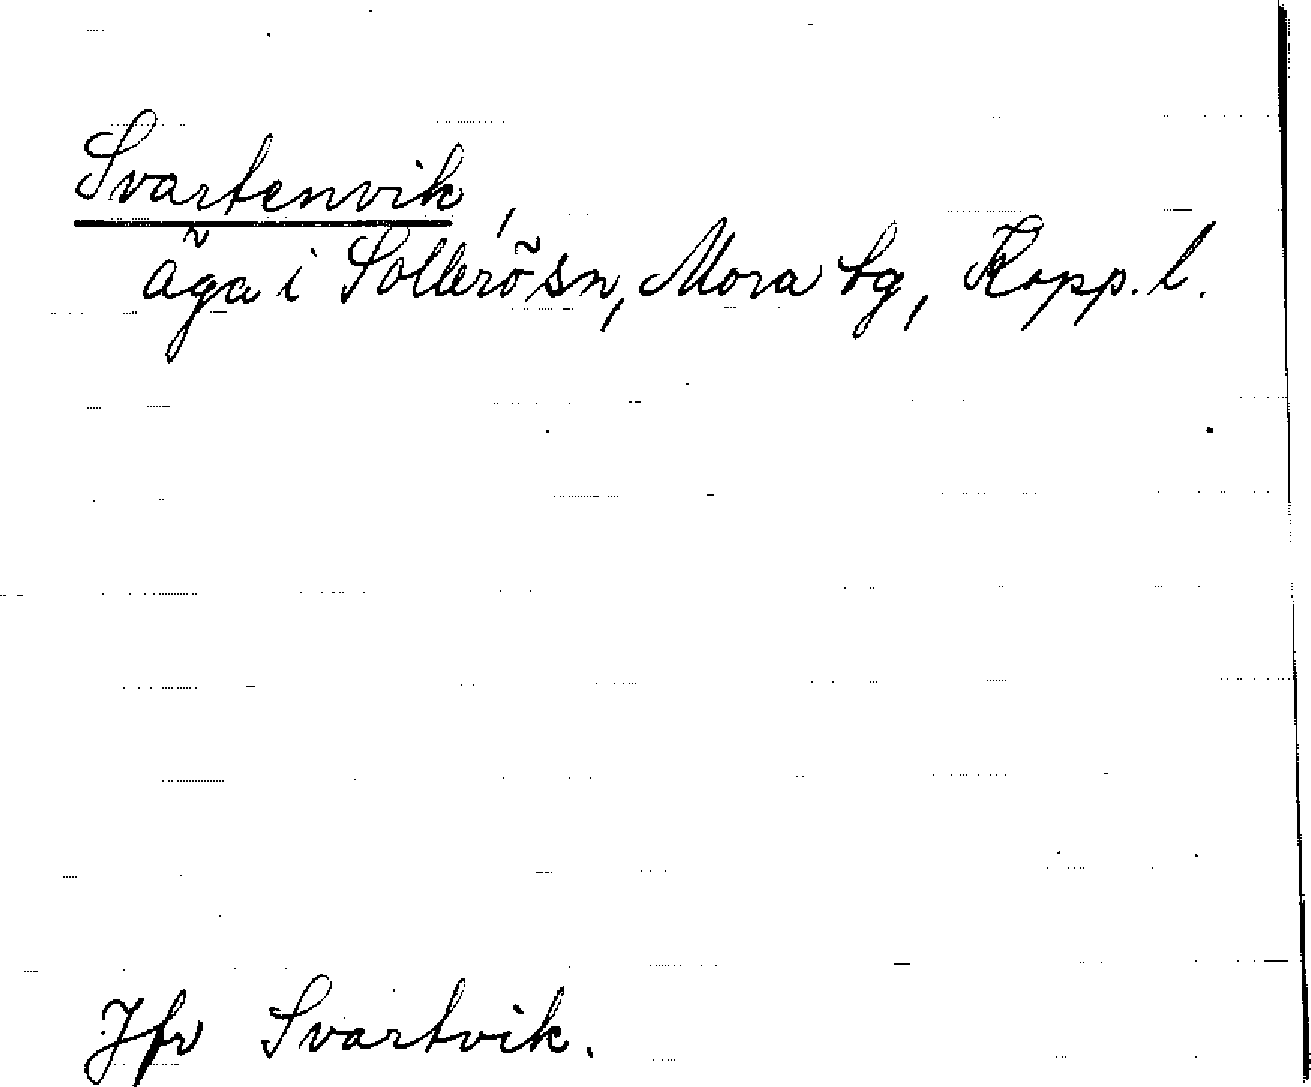 Svartenvik,
äga i Sollerö sn, Mora tg, Kopp. l.
Jfr Svartvik.